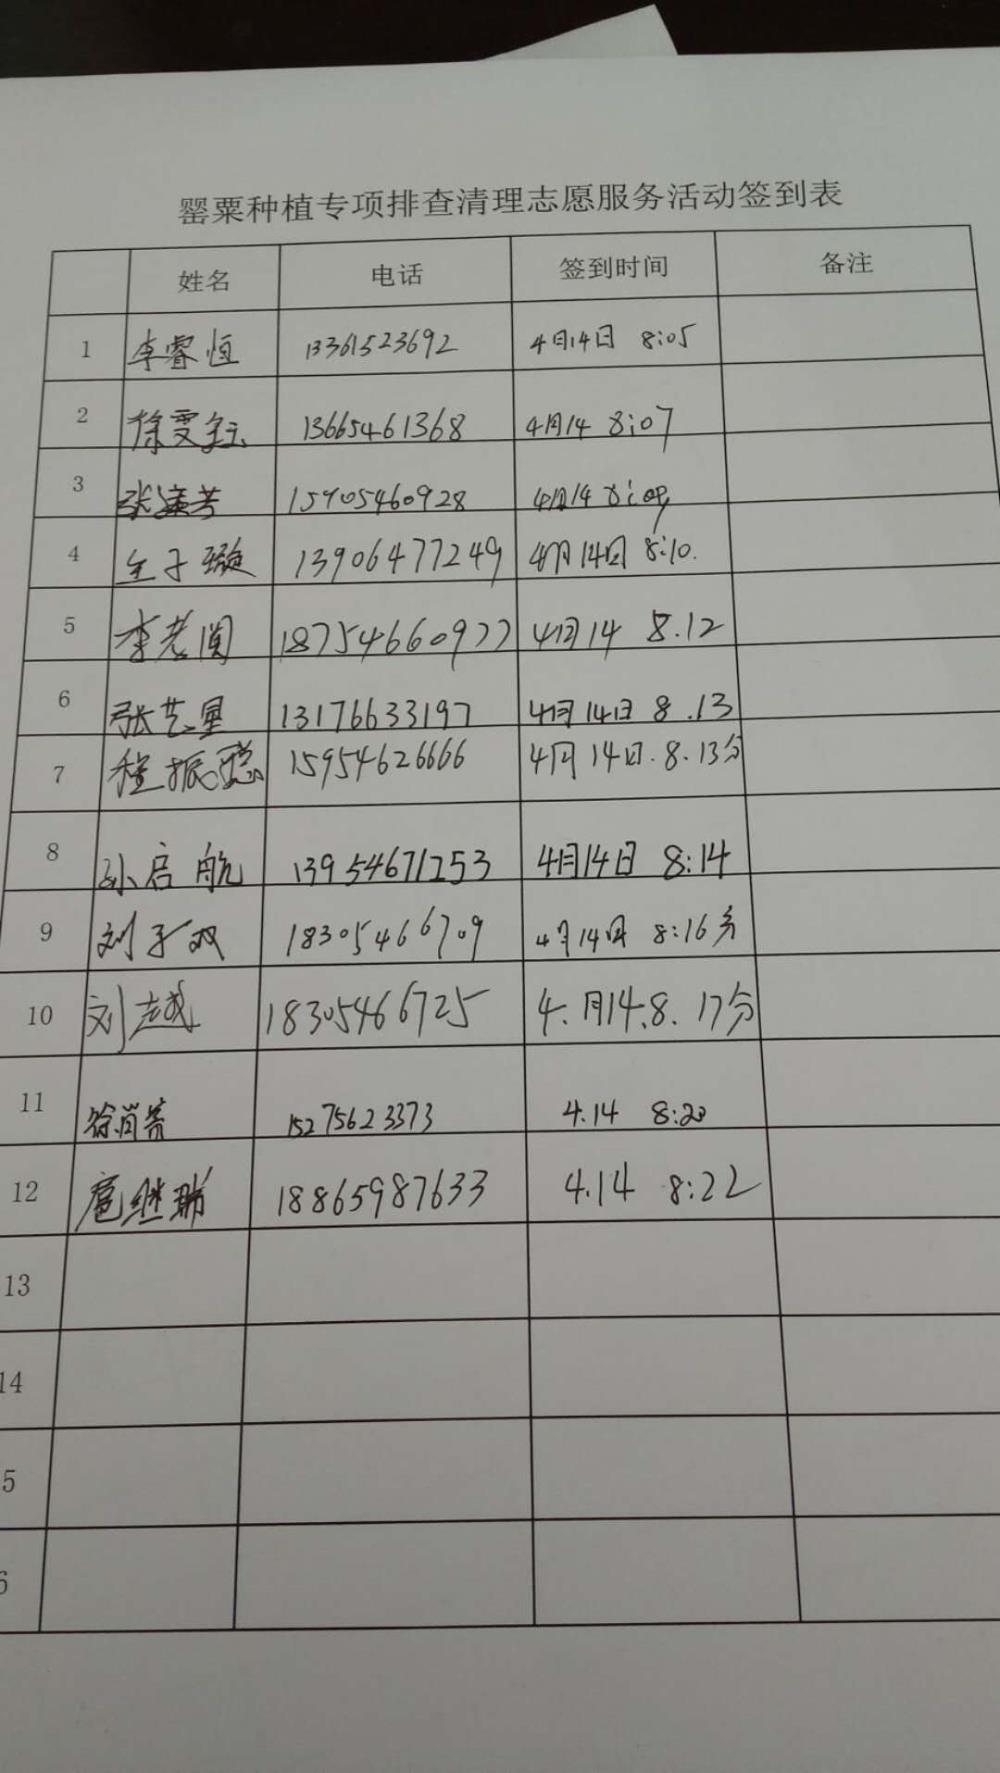 罂粟种植专项排查清理志愿服务活动签到表
姓名 电话 签到时间 备注
1 李睿恒 13361523692 4月14日 8:05
2 徐雯钰 13665461368 4月14 8:07
3 张 芳 15905460928 4月14 8:09
4 王子璇 13906477249 4月14日 8:10.
5 李 18754660977 4月14 8.12
6 张艺星 13176633197 4月14日 8.13
7 程振聪 15954626666 4月14日.8.13分
8 孙启航 13954671253 4月14日 8:14
9 刘子双 18305466709 4月14日 8:16分
10 刘越 18305466725 4.月14.8.17分
11 徐尚 15275623373 4.14 8:20
12 扈继 18865987633 4.14 8:22
13
14
5
6